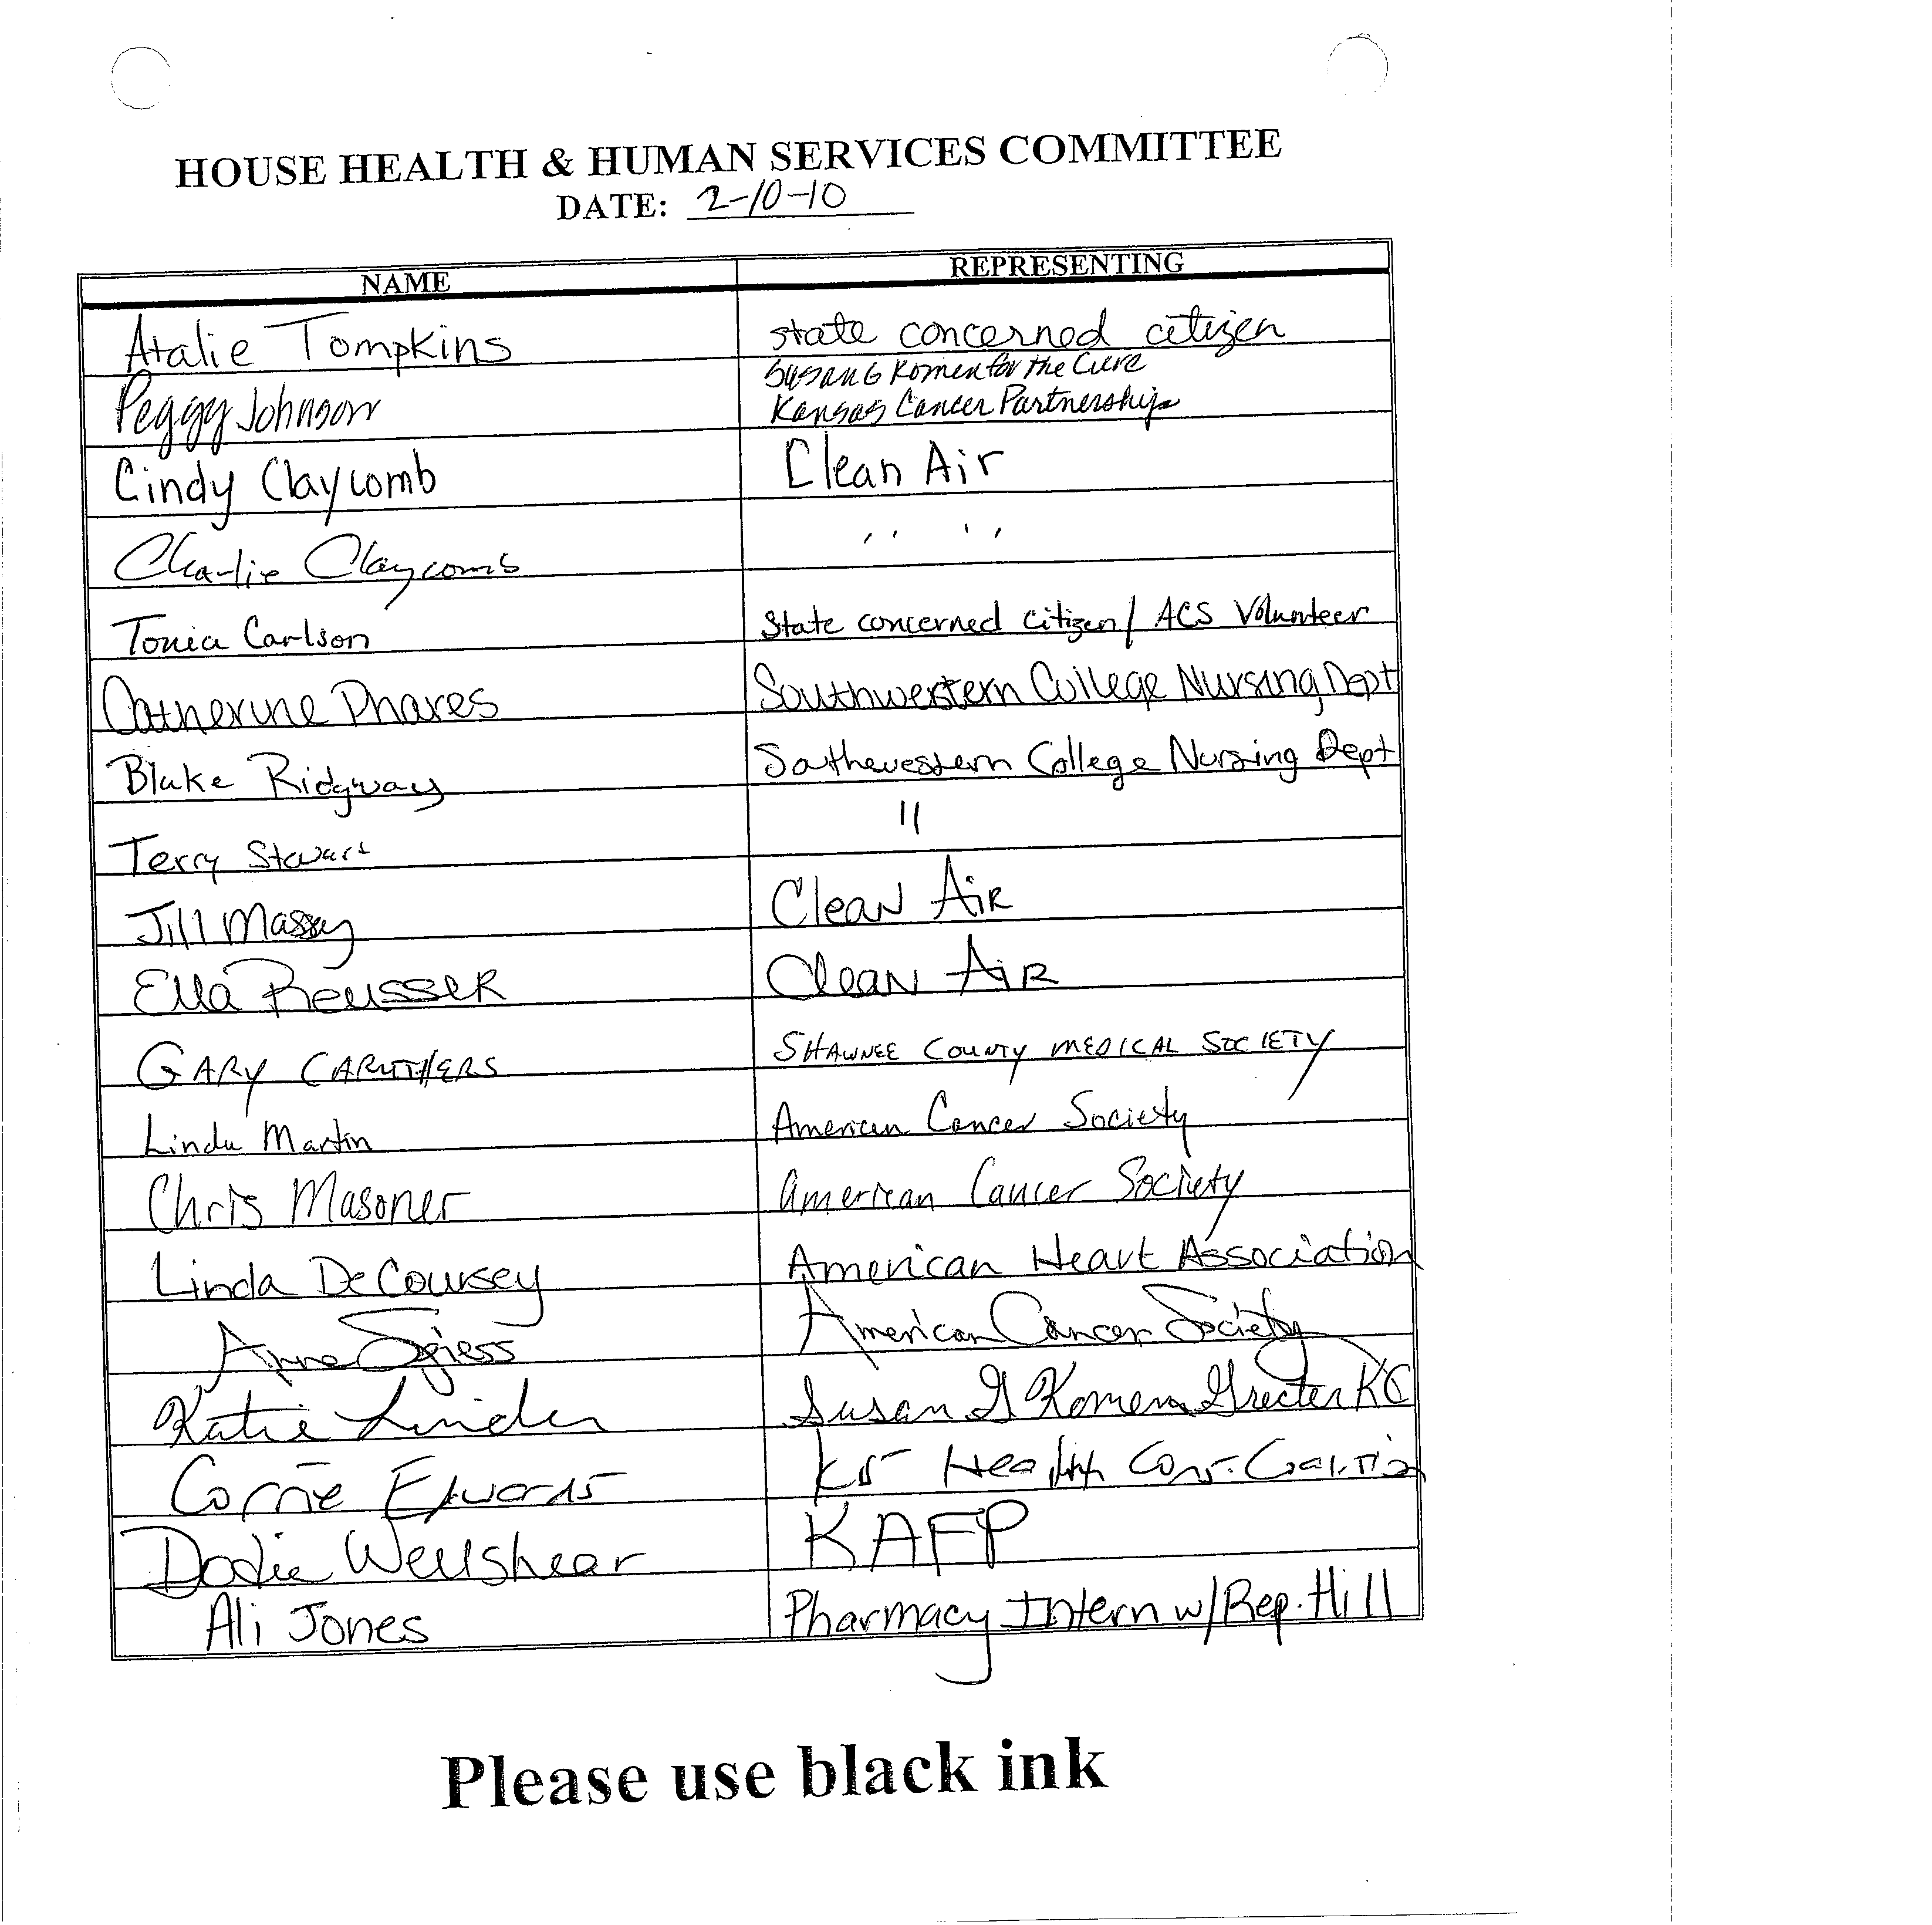 HOUSE HEALTH & HUMAN SERVICES COMMITTEE
DATE: 2-10-10
NAME REPRESENTING
Atalie Tompkins state concerned citizen
Peggy Johnson Susan G Komen for the Cure
Kansas Cancer Partnership
Cindy Claycomb Clean Air
Charlie Claycomb " "
Tonia Carlson State concerned citizen/ ACS Volunteer
Catherine Phares Southwestern College Nursing Dept
Blake Ridgway Southwestern College Nursing Dept
Terry Stewart "
Jill Massey Clean Air
Ella Reusser Clean Air
GARY CARUTHERS SHAWNEE COUNTY MEDICAL SOCIETY
Linda Martin American Cancer Society
Chris Masoner American Cancer Society
Linda DeCoursey American Heart Association
Anne Spiess American Cancer Society
Katie Linder Susan G Komen Greater KC
Corrie Edwards KS Health Cons. Coalition
Dodie Wellshear KAFP
Ali Jones Pharmacy Intern w/Rep. Hill
Please use black ink